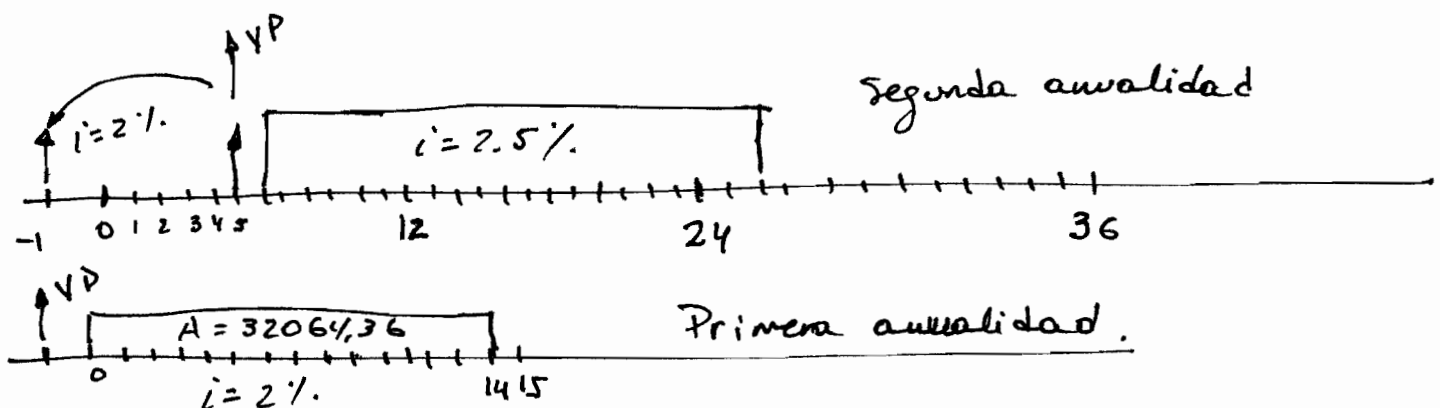 VP
i=2%.
i=2.5%.
Segunda anualidad
-1 0 1 2 3 4 5 12 24 36
VP
A = 32064,36
Primera anualidad.
0 14 15
i=2%.